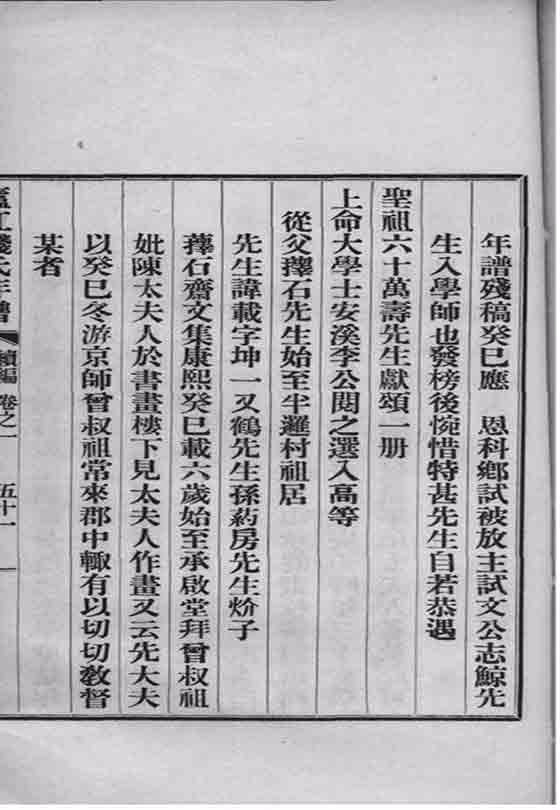 年譜殘稿癸巳應　恩科鄕試被放主試文公志鯨先
生入學師也發榜後惋惜特甚先生自若恭遇
聖祖六十萬壽先生獻頌一册
上命大學士安溪李公閱之選入高等
從父蘀石先生始至半邏村祖居
先生諱載字坤一又鶴先生孫葯房先生炌子
蘀石齋文集康熙癸巳載六歲始至承啟堂拜曾叔祖
妣陳太夫人於書畫樓下見太夫人作畫又云先大夫
以癸巳冬游京師曾叔祖常來郡中輙有以切切敎督
某者
廬江錢氏年譜　續編　卷之一　五十一